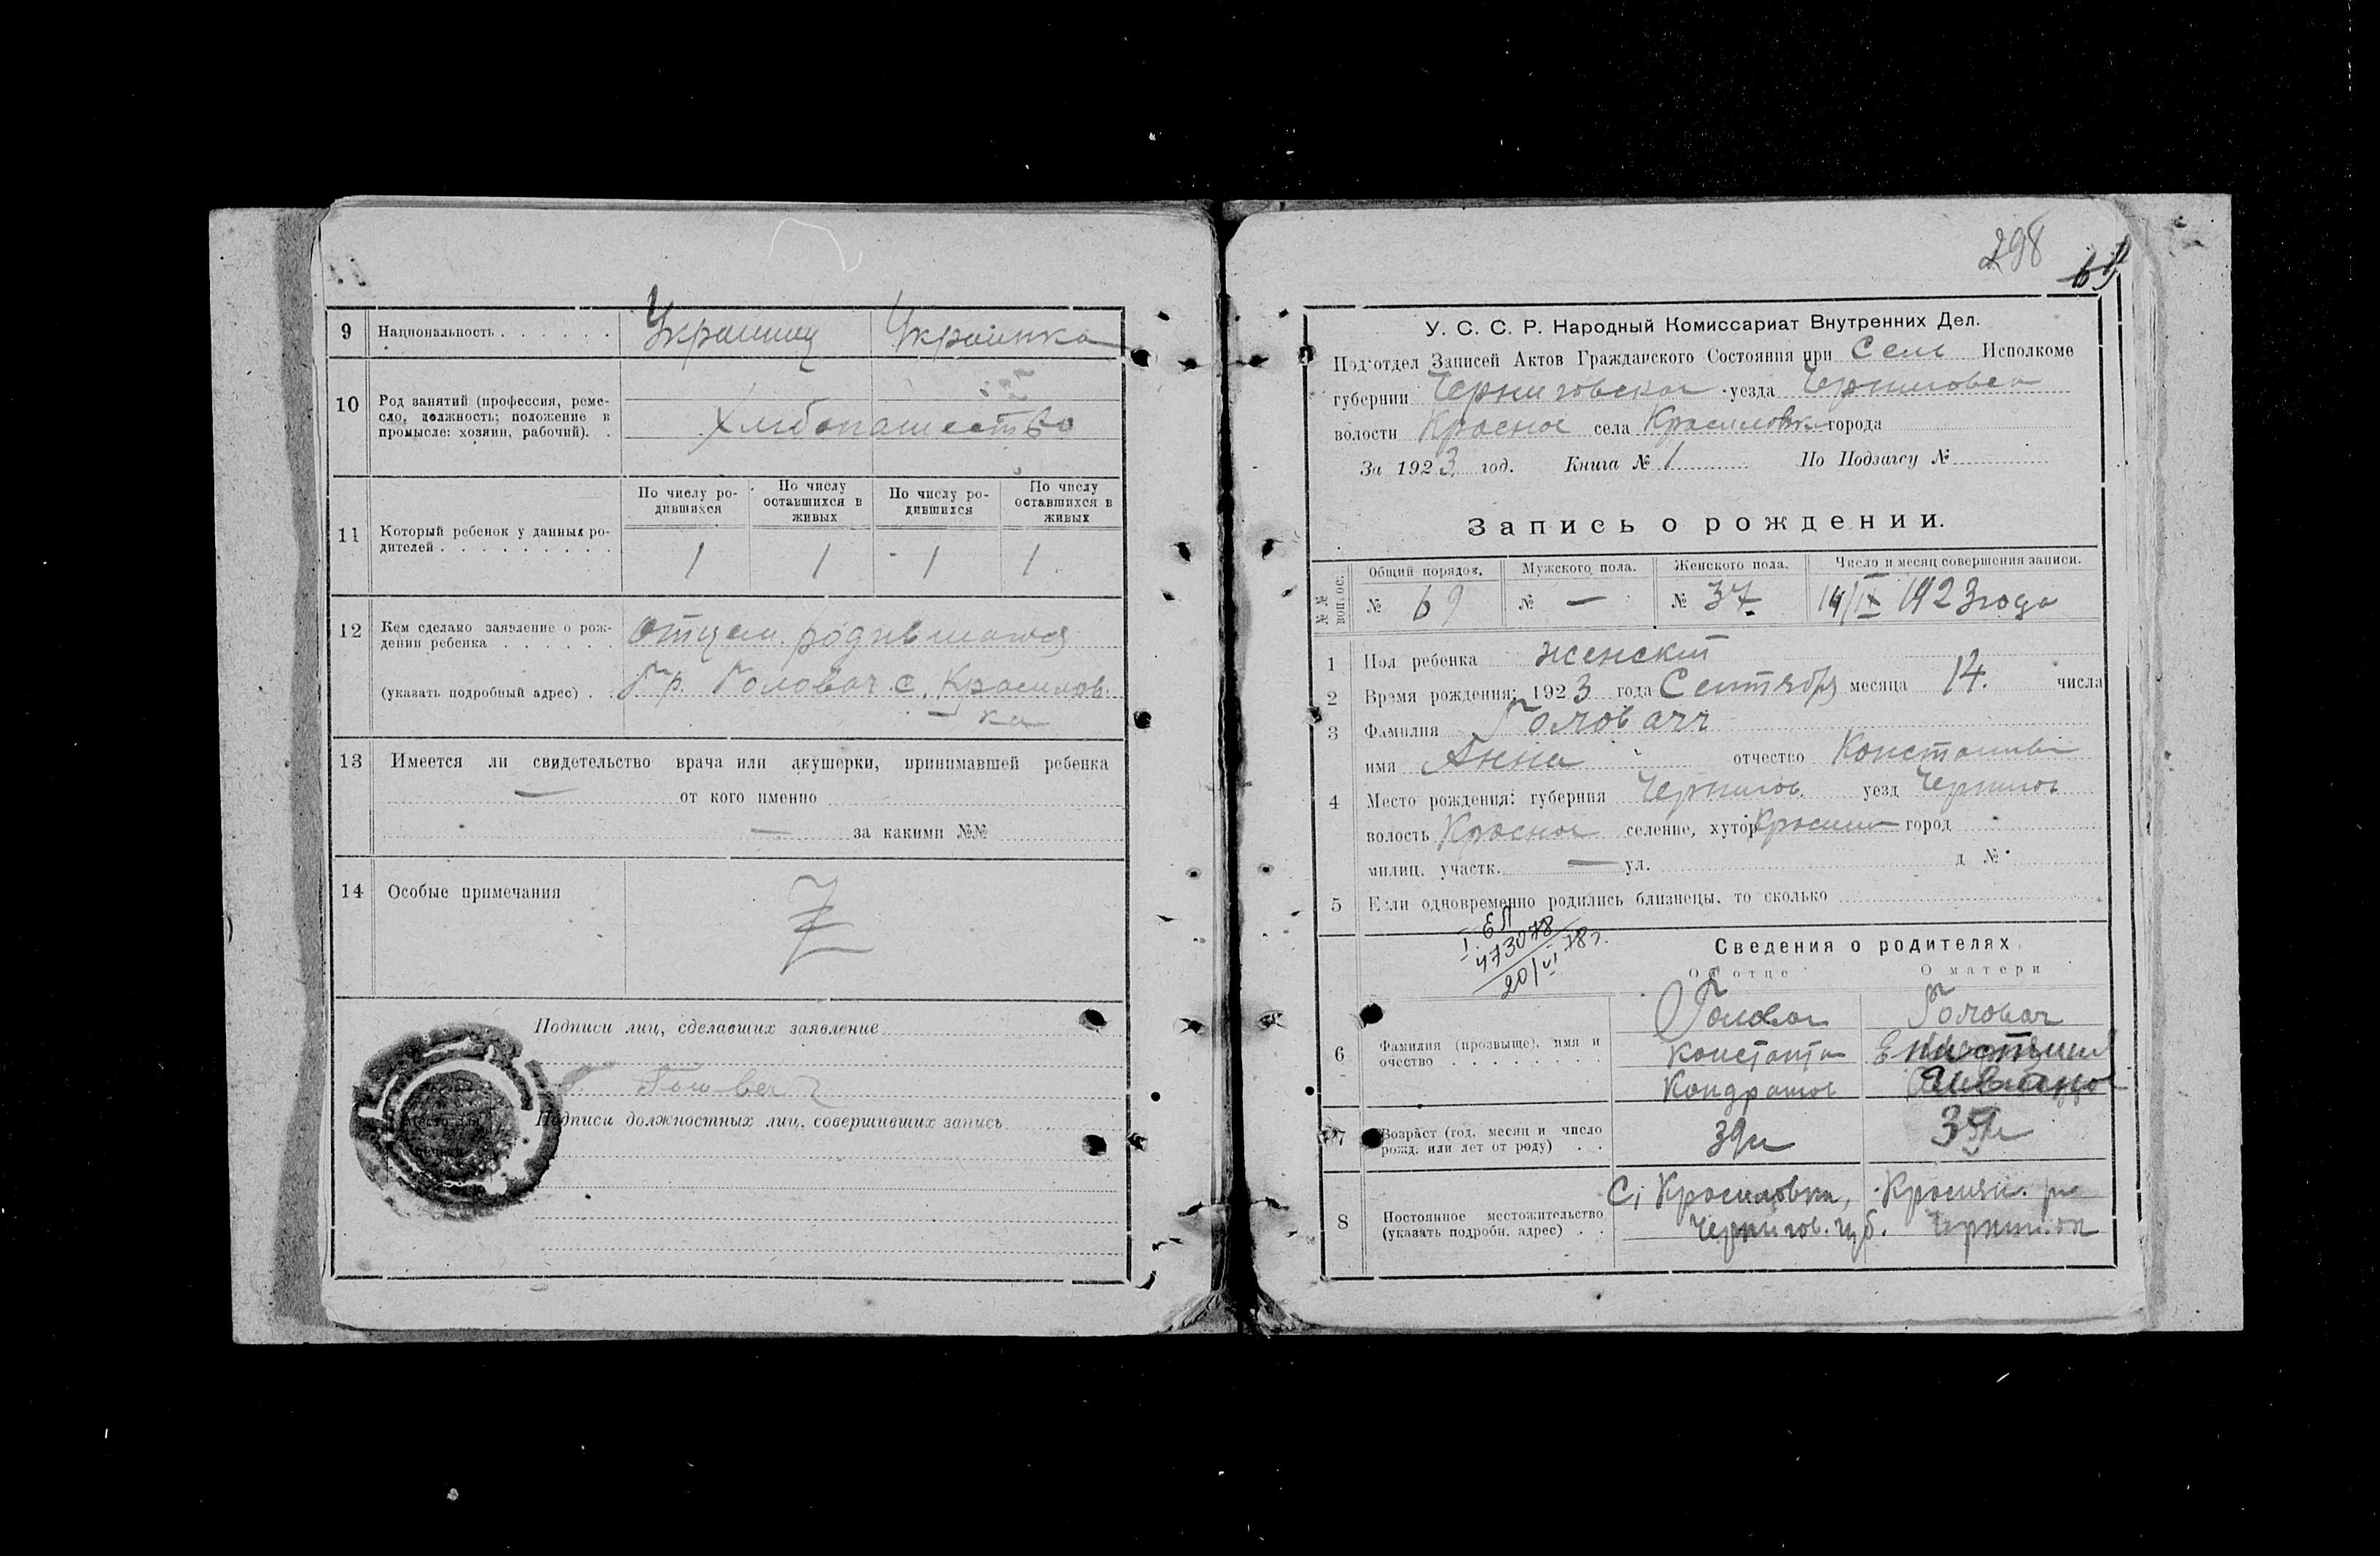 9 Национальность . . . . . . Украинец Украинка
10 Род занятий (профессия, реме-
сло, должность; положение в
промысле: хозяин, рабочий). .
Хлибопашество
По числу ро-
дившихся
По числу
оставшихся в
живых
По числу ро-
дившихся
По числу
оставшихся в
живых
11 Который ребенок у данных ро-
дителей . . . . . . . . .
1 1 1 1
12 Кем сделано заявление о рож-
дении ребенка . . . . . .
Отцем
(указать подробный адрес) . Гр. Головач с. Красилов-
ка
13 Имеется ли свидетельство врача или акушерки, принимавшей ребенка
— от кого именно
— за какими №№
14 Особые примечания
Подписи лиц, сделавших заявление
Подписи должностных лиц, совершивших запись
298
69
У. С. С. Р. Народный Комиссариат Внутренних Дел.
Подотдел Записей Актов Гражданского Состояния при Сель Исполкоме
губернии Черниговской уезда Черниговск
волости Красное села Красиловка города
За 1923 год. Книга № 1 По Подзагсу №
Запись о рождении.
№№ вопрос.
Общий порядок. Мужского пола. Женского пола. Число и месяц совершения записи.
№ 69 № — № 37 14/IX 1923 года
1 Пол ребенка женский
2 Время рождения: 1923 года Сентября месяца 14. числа
3 Фамилия Головач
имя Анна отчество Константинов
4 Место рождения: губерния Чернигов. уезд Чернигов
волость Красное селение, хутор Красилов город
милиц. участк. — ул. д №
5 Если одновременно родились близнецы, то сколько
I. ЕЛ
473078
20/VI 78 г.
Сведения о родителях
Об отце О матери
6 Фамилия (прозвище), имя и
очество . . . . . . . .
Головач Головач
Константин
Кондратов
7 Возраст (год, месяц и число
рожд. или лет от роду) . .
39 л
8 Постоянное местожительство
(указать подробн. адрес) . .
С. Красиловка, Краснян. р
Чернигов. губ. Чернигов